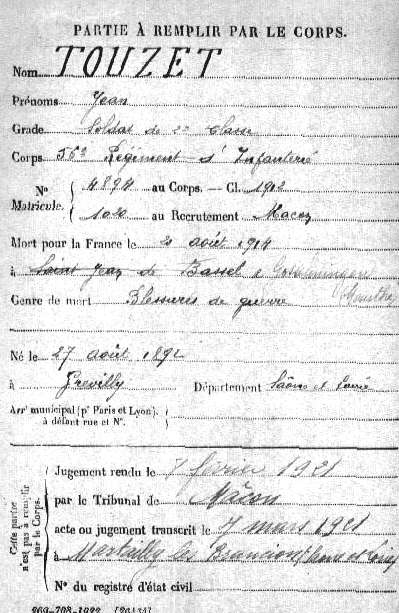 PARTIE À REMPLIR PAR LE CORPS.
Nom TOUZET
Prénoms Jean
Grade Soldat de 2e Classe
Corps 56e Régiment d'Infanterie
N° Matricule. 4894 au Corps. — Cl. 1912
1020 au Recrutement Macon
Mort pour la France le 20 août 1914
à Saint Jean de Bassel
Genre de mort Blessures de guerre
Né le 27 août 1892
à Grevilly Département Saône et Loire
Arrt municipal (pr Paris et Lyon),
à défaut rue et N°.
Cette partie n'est pas à remplir par le Corps.
Jugement rendu le 7 février 1921
par le Tribunal de Mâcon
acte ou jugement transcrit le 7 mars 1921
à Martailly les Brancion (Saône et Loire)
N° du registre d'état civil